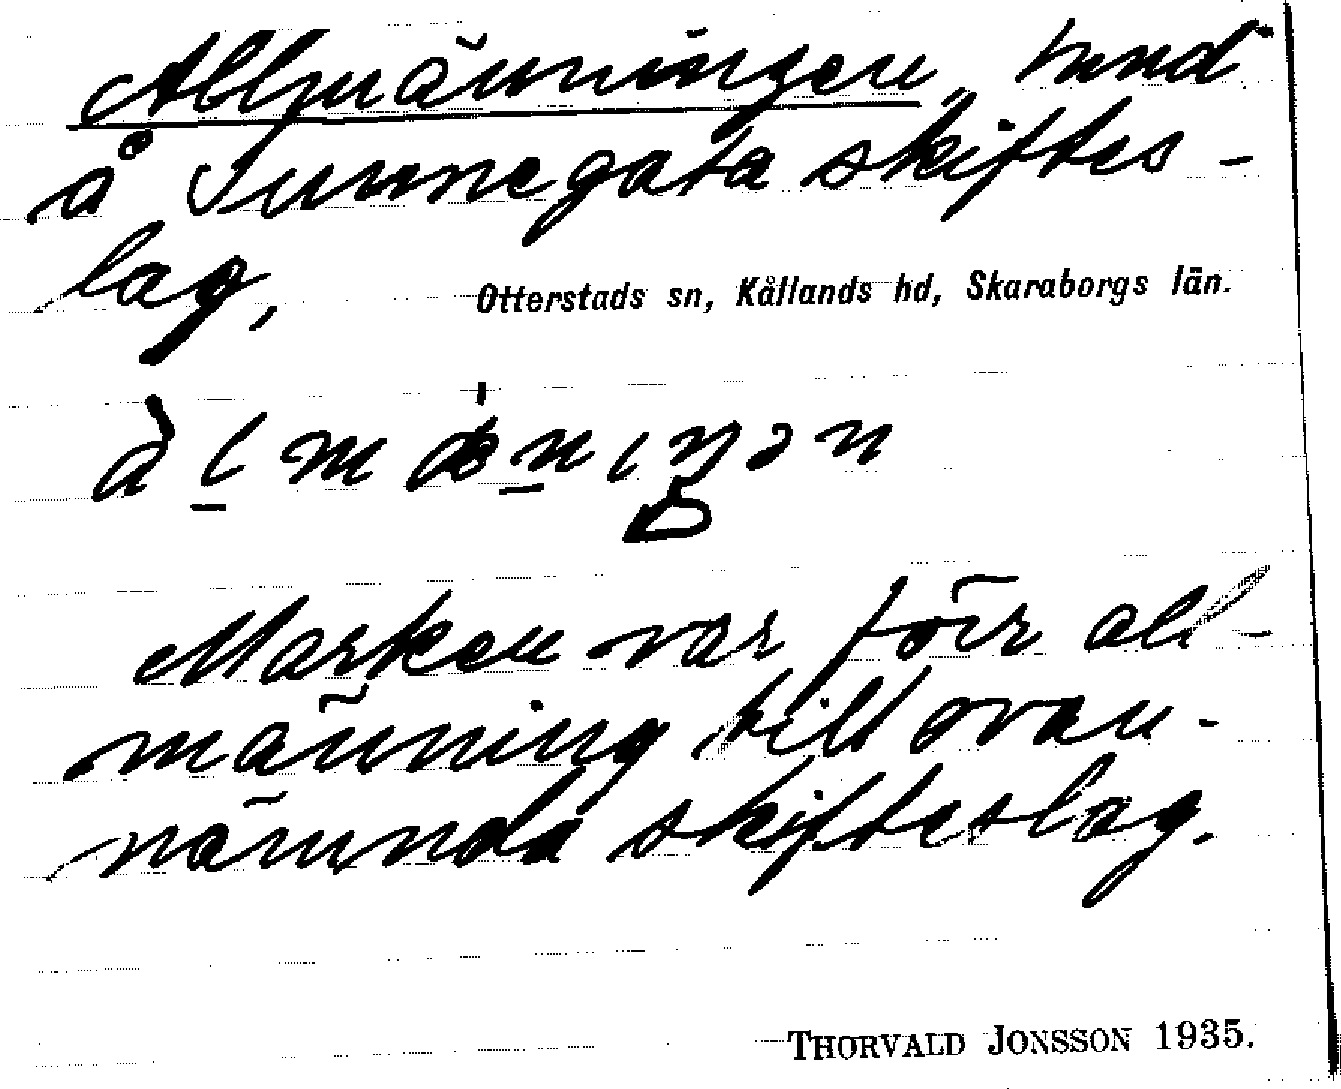 Allmänningen, hmd
å Sunnegata skiftes-
lag,
Otterstads sn, Kållands hd, Skaraborgs län.
Marken var förr all-
männing till ovan-
nämnda skifteslag.
THORVALD JONSSON 1935.